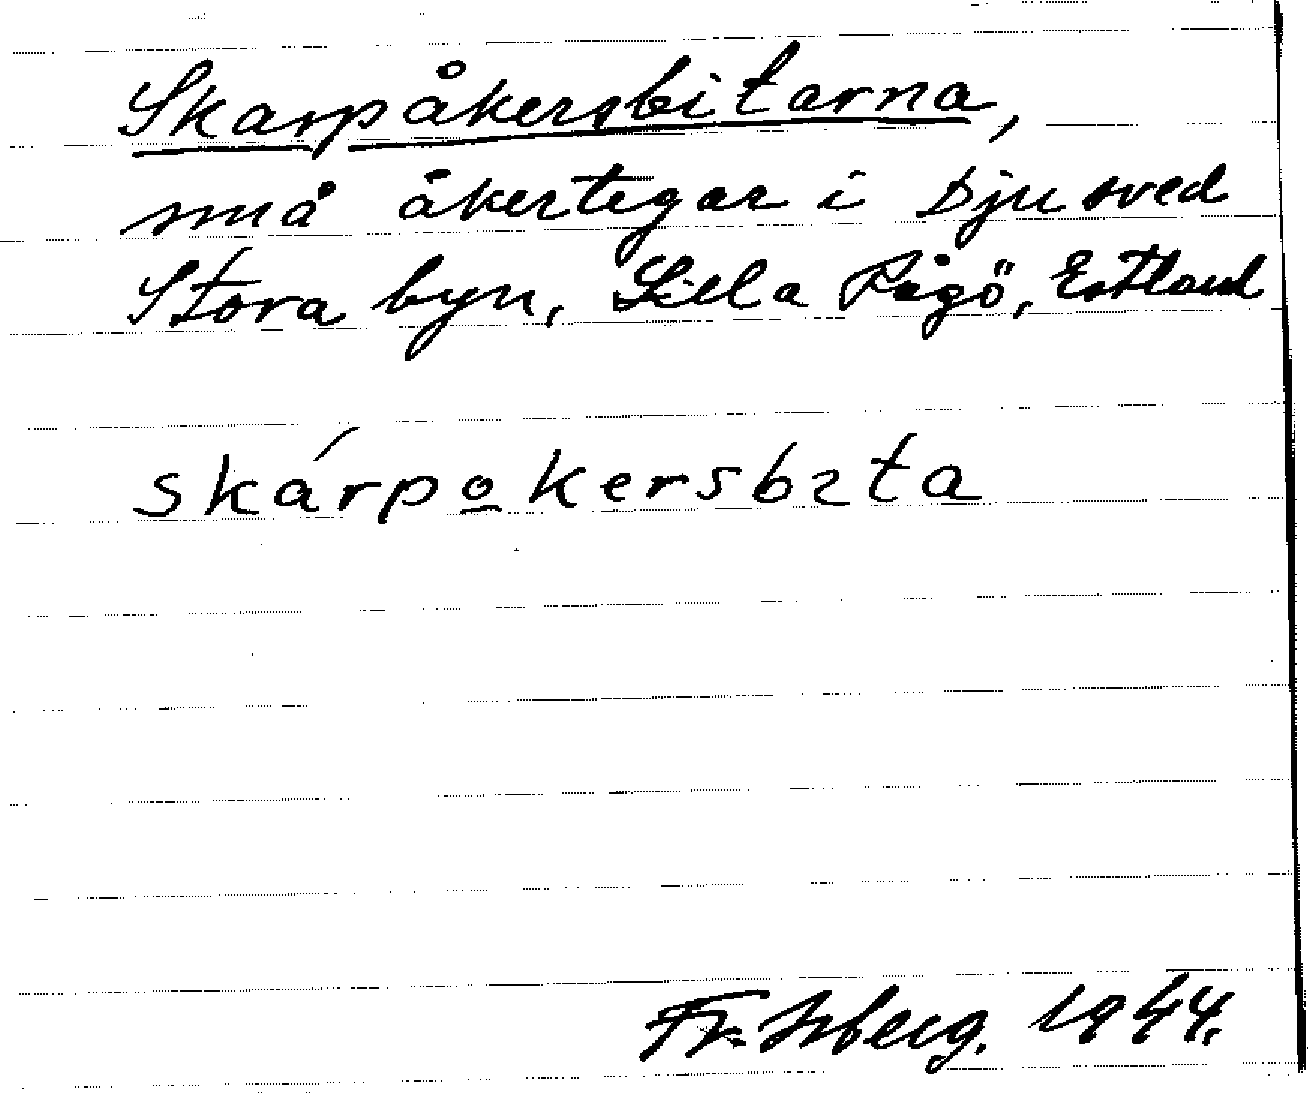 Skarpåkersbitarna,
små åkertegar i Djusved
Stora byn, Lilla Rågö, Estland
skárpo̲kersbıta
Fr. Isberg. 1944.